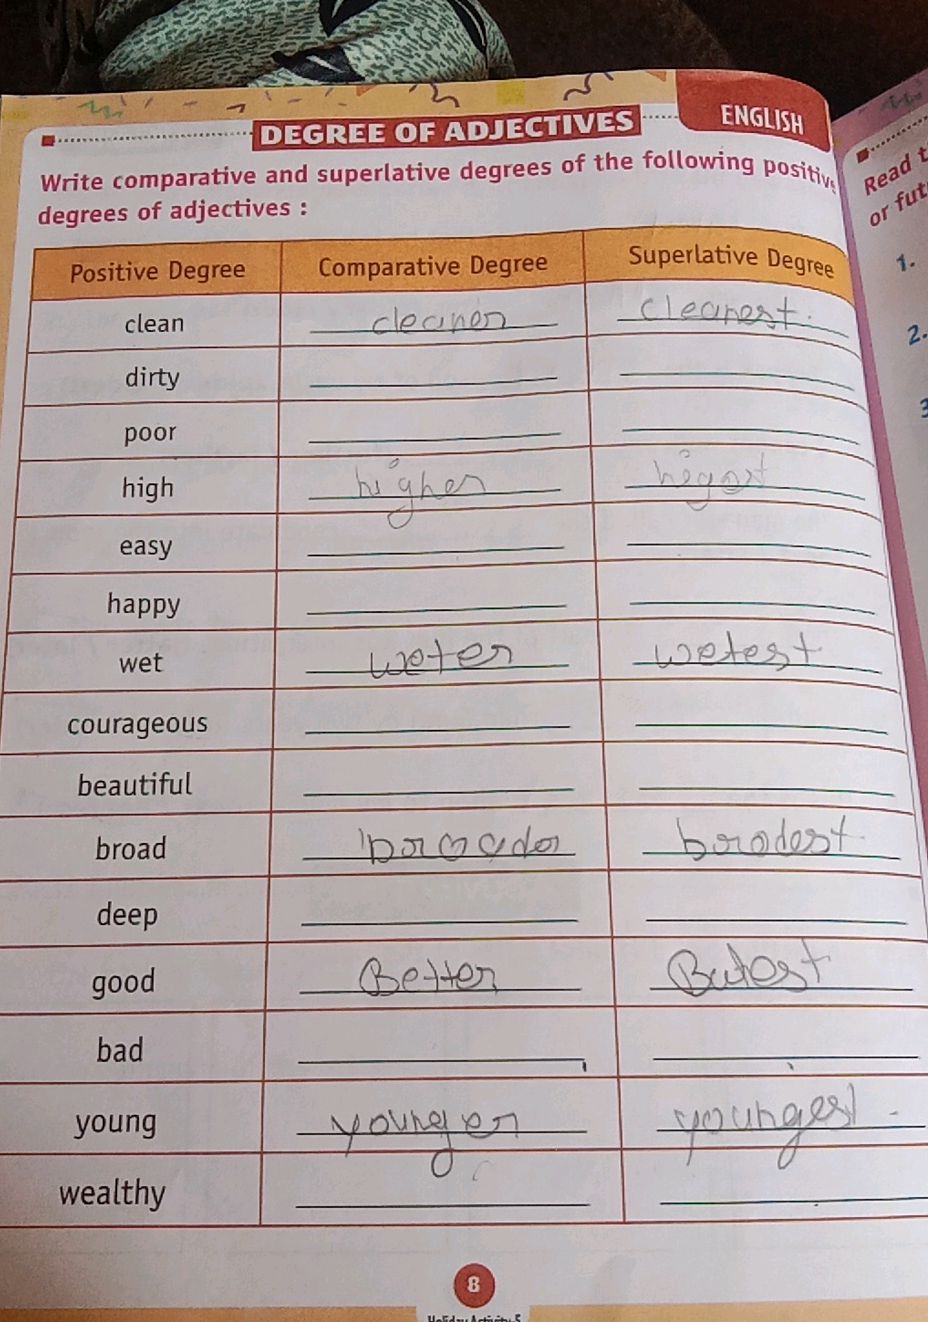 DEGREE OF ADJECTIVES
ENGLISH
Write comparative and superlative degrees of the following positive
degrees of adjectives :
Positive Degree Comparative Degree Superlative Degree
clean cleaner cleanest.
dirty
poor
high higher higest
easy
happy
wet weter wetest
courageous
beautiful
broad broader brodest.
deep
good Better Butest
bad
young younger youngest
wealthy
8
Holiday Activity-5
Read t
or fut
1.
2.
3